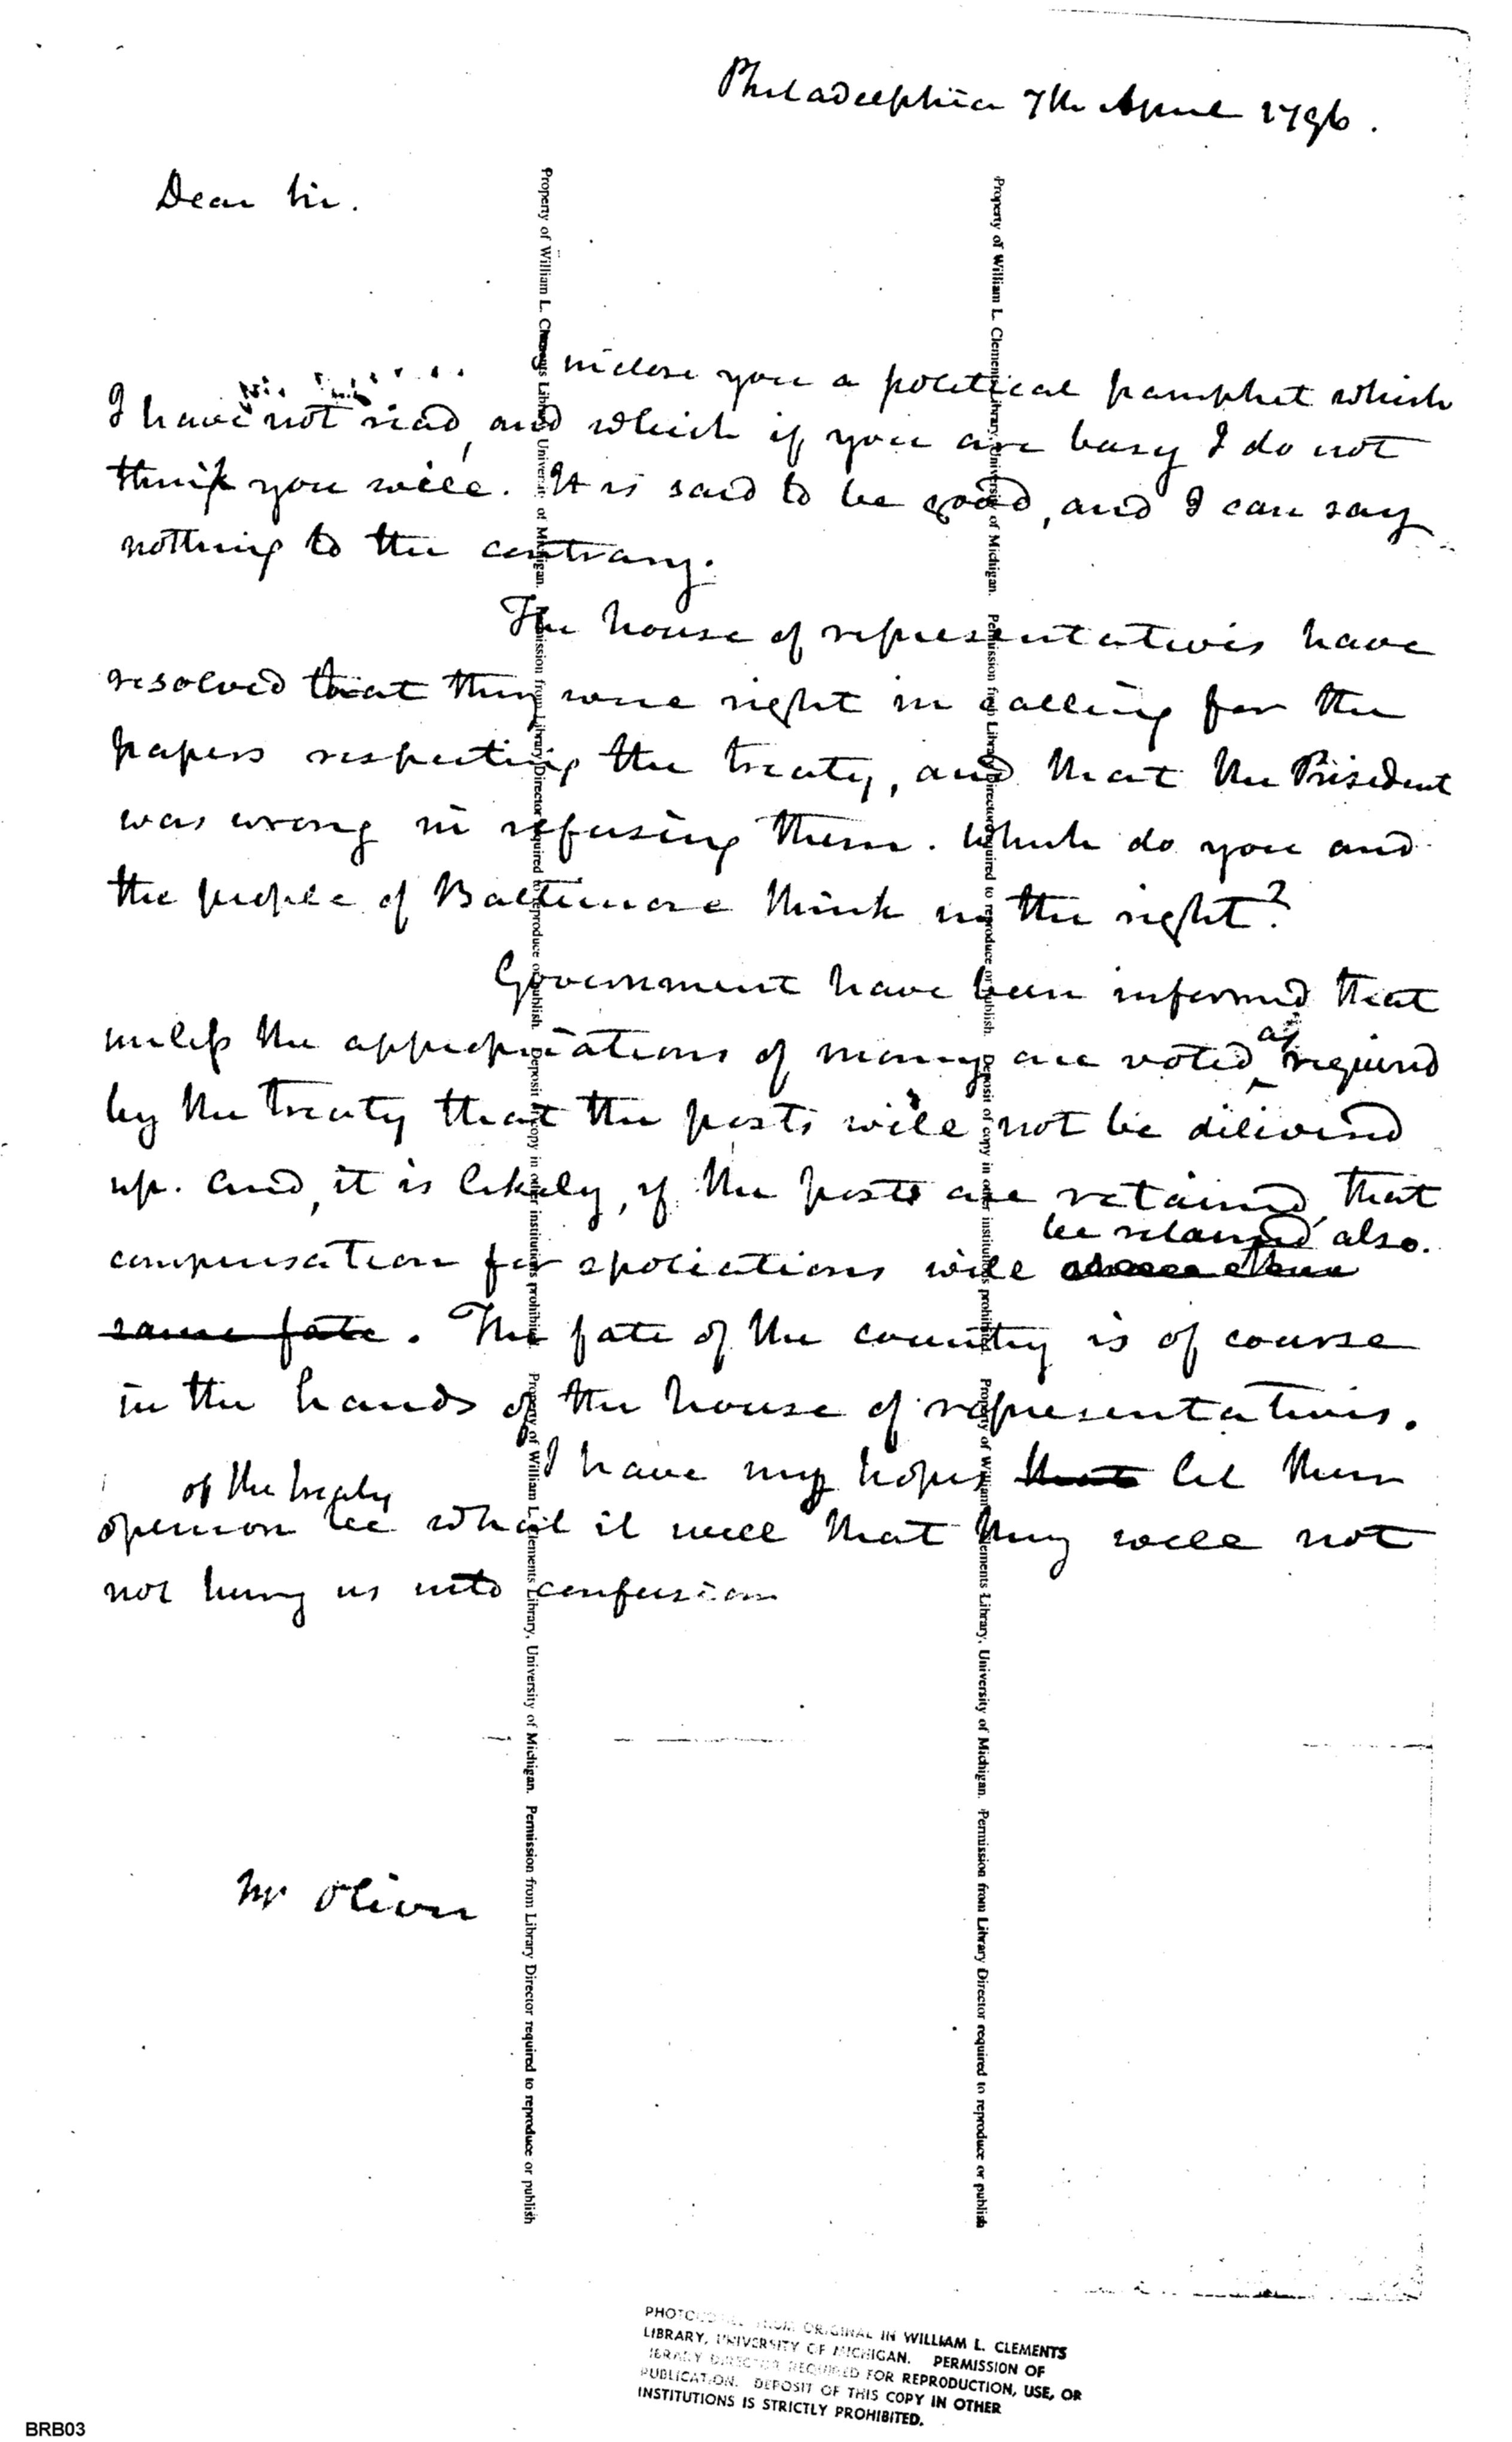 Philadelphia 7th April 1796.
Dear Sir.
I inclose you a political pamphlet which
I have not read, and which if you are busy I do not
think you will. It is said to be good, and I can say
nothing to the contrary.
The house of representatives have
resolved that they were right in calling for the
papers respecting the treaty, and that the President
was wrong in refusing them. Which do you and
the people of Baltimore think in the right?
Government have been informed that
unless the appropriations of money are voted as required
by the treaty that the posts will not be delivered
up. And, it is likely, if the posts are retained, that
be retained also.
compensation for spoliations will
same fate. The fate of the country is of course
in the hands of the house of representatives.
I have my hopes that let their
of the treaty
opinion be what it will that they will not
not bring us into confusion
Mr Oliver
Property of William L. Clements Library, University of Michigan. Permission from Library Director required to reproduce or publish. Deposit of copy in other institutions prohibited. Property of William L. Clements Library, University of Michigan. Permission from Library Director required to reproduce or publish
Property of William L. Clements Library, University of Michigan. Permission from Library Director required to reproduce or publish. Deposit of copy in other institutions prohibited. Property of William L. Clements Library, University of Michigan. Permission from Library Director required to reproduce or publish
FROM ORIGINAL IN WILLIAM L. CLEMENTS
LIBRARY, UNIVERSITY OF MICHIGAN. PERMISSION OF
LIBRARY DIRECTOR REQUIRED FOR REPRODUCTION, USE, OR
PUBLICATION. DEPOSIT OF THIS COPY IN OTHER
INSTITUTIONS IS STRICTLY PROHIBITED.
BRB03